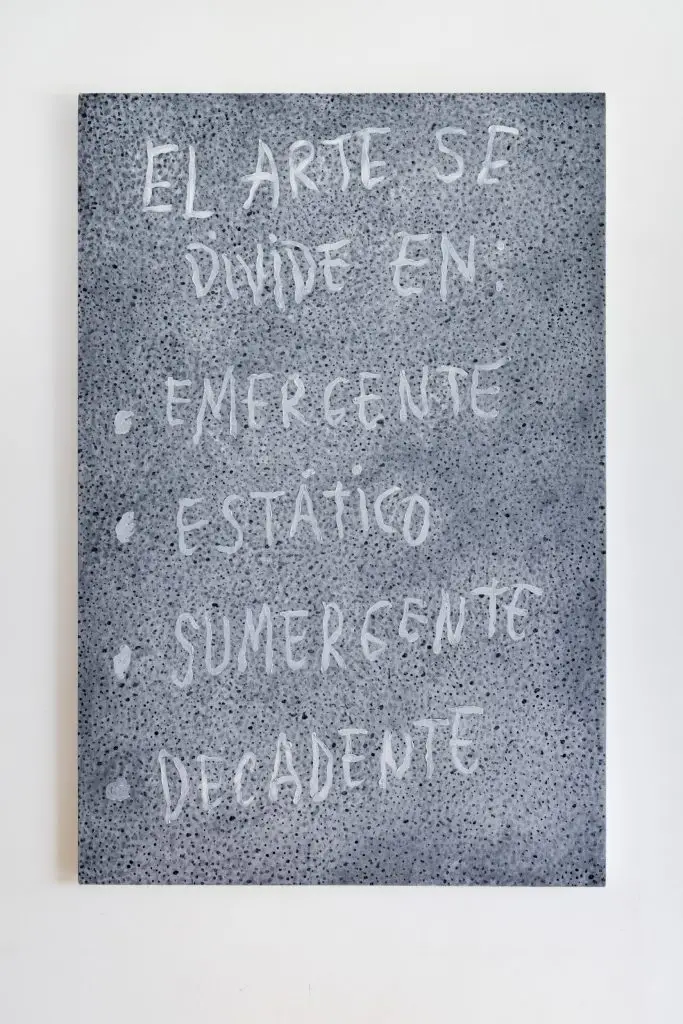 EL ARTE SE
DiViDE EN:
• EMERGENTE
• ESTÁTiCO
• SUMERGENTE
• DECADENTE